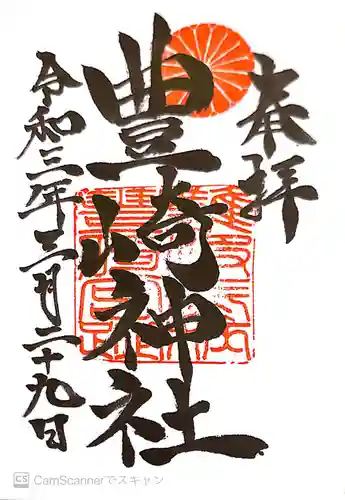 奉拝
豊崎神社
令和三年三月二十九日
CS CamScannerでスキャン